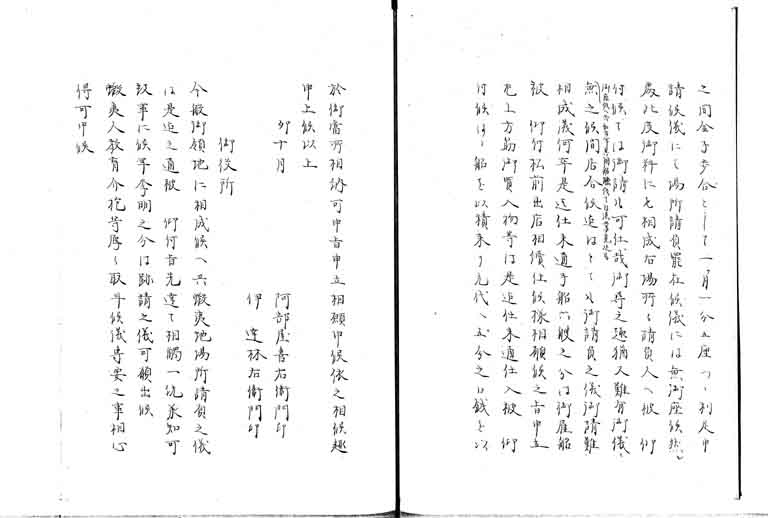 之間金子歩合として一月一分五座つゝ利足申
請候儀にて場所請負罷在候儀には無御座候然ル
處此度御料に相成右場所々請負人へ被 仰
付候ては御請も可仕哉御尋之趣猶又難有御儀ニ
無之候間店合候迄はとても御請負之儀御請難
相成儀何卒是迄仕来通手船六艘之分は御雇船
被 仰付私前出店相償仕候様相願候之旨申立
尤上方筋御買入物等は是迄仕来通仕入被 仰
付候はゝ船を以積来り元代へ五分之口銭を以
於御當所相納可申旨申立相願申候依之相伺趣
申上候以上
卯十月
阿部屋喜右衛門印
伊達林右衛門印
御役所
今般御領地に相成候へ共蝦夷地場所請負之儀
は是迄之通被 仰付旨先達て相觸一統承知可
致事に候等李明之分は跡請之儀可願出候
蝦夷人教育介抱等厚く取斗候儀専要之事相心
得可申候